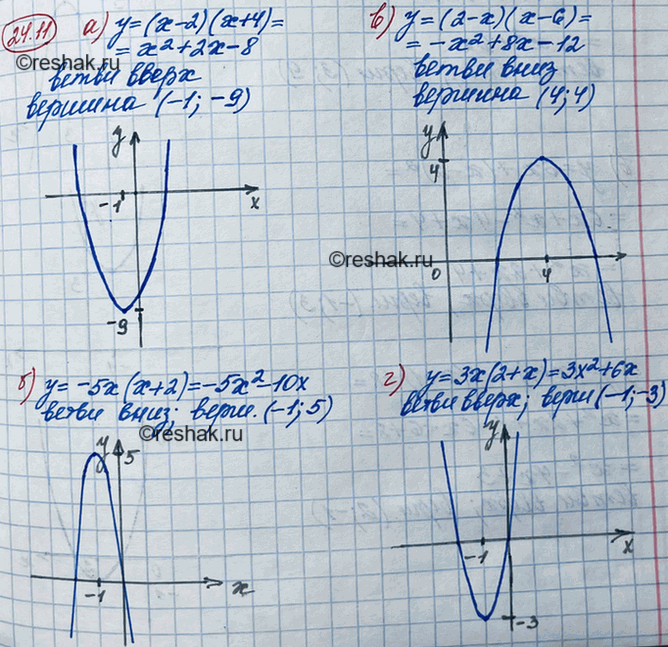 24.11
а) y=(x-2)(x+4)=
= x²+2x-8
ветви вверх
вершина (-1; -9)
y
-1
x
-9
в) y=(2-x)(x-6)=
= -x²+8x-12
ветви вниз
вершина (4; 4)
y
4
0
4
б) y= -5x(x+2)=-5x²-10x
ветви вниз; верш. (-1; 5)
y
5
-1
x
г) y=3x(2+x)=3x²+6x
ветви вверх; верш (-1; -3)
y
-1
x
-3
©reshak.ru
©reshak.ru
©reshak.ru
©reshak.ru